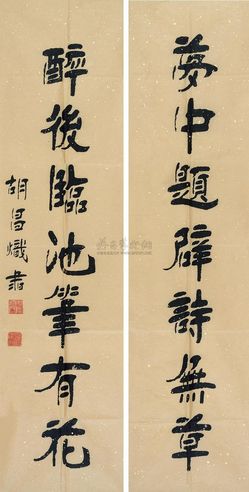 夢中題壁詩無草
醉後臨池筆有花
胡昌熾書